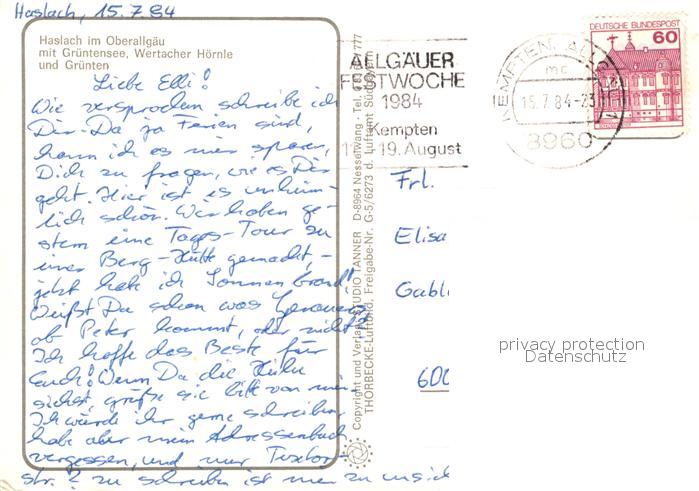 Haslach, 15.7.84
Haslach im Oberallgäu
mit Grüntensee, Wertacher Hörnle
und Grünten
Liebe Elli!
Wie versprochen schreibe ich
Dir. Da ja Ferien sind,
kann ich es mir sparen,
Dich zu fragen, wie es Dir
geht. Hier ist es unheim-
lich schön. Wir haben ge-
stern eine Tages-Tour zu
einer Berg-Hütte gemacht -
jetzt habe ich Sonnenbrand!
Weißt Du schon was Genaueres,
ob Peter kommt, oder nicht?
Ich hoffe das Beste für
Euch! Wenn Du die
siehst, grüße sie bitte von mir.
Ich würde ihr gerne schreiben
habe aber mein Adressenbuch
vergessen, und nur
str. ? zu schreiben ist mir zu unsich
Copyright und Verlag STUDIO TANNER D-8964 Nesselwang - Tel.
THORBECKE-Luftbild, Freigabe-Nr. G-5/6273 d. Luftamt Südbayern
ALLGÄUER
FESTWOCHE
1984
Kempten
19. August
KEMPTEN, ALLGÄU
mc
15.7.84-23
8960
DEUTSCHE BUNDESPOST
60
Frl.
Elisa
Gabl
600
privacy protection
Datenschutz